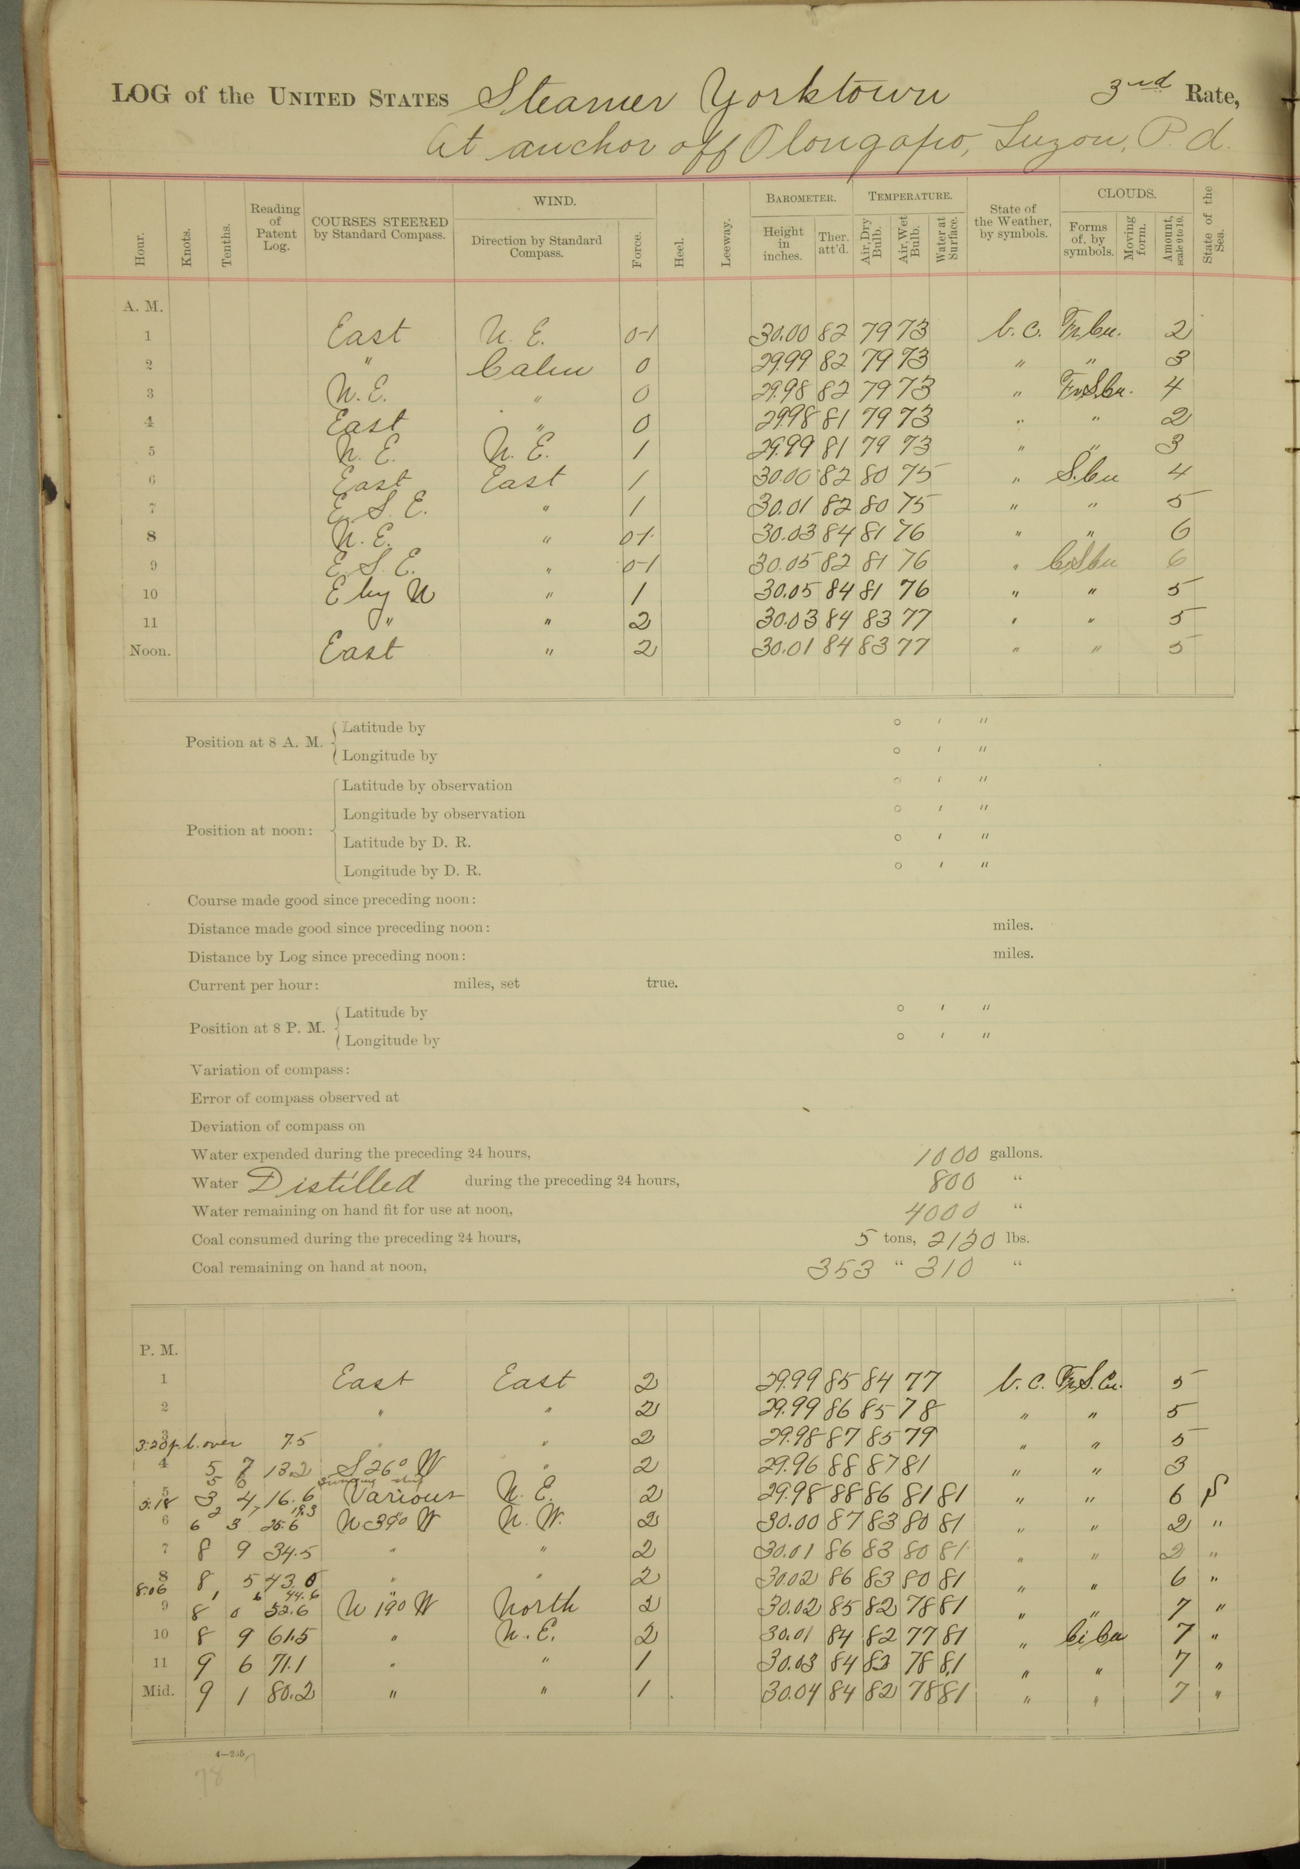 LOG of the UNITED STATES Steamer Yorktown 3rd Rate,
At anchor off Olongapo, Luzon, P. I.
Hour. Knots. Tenths. Reading of Patent Log. COURSES STEERED by Standard Compass. WIND. Direction by Standard Compass. Force. Heel. Leeway. BAROMETER. Height in inches. Ther. att'd. TEMPERATURE. Air, Dry Bulb. Air, Wet Bulb. Water at Surface. State of the Weather, by symbols. CLOUDS. Forms of, by symbols. Moving form. Amount, scale 0 to 10. State of the Sea.
A. M.
1 East N. E. 0-1 30.00 82 79 73 b. c. Fr. Cu. 2
2 " Calm 0 29.99 82 79 73 " " 3
3 N. E. " 0 29.98 82 79 73 " Fr. S. Cu. 4
4 East " 0 29.98 81 79 73 " " 2
5 N. E. N. E. 1 29.99 81 79 73 " " 3
6 East East 1 30.00 82 80 75 " S. Cu 4
7 E. S. E. " 1 30.01 82 80 75 " " 5
8 N. E. " 0-1 30.03 84 81 76 " " 6
9 E. S. E. " 0-1 30.05 82 81 76 " Ci S Cu 6
10 E by N " 1 30.05 84 81 76 " " 5
11 " " 2 30.03 84 83 77 " " 5
Noon. East " 2 30.01 84 83 77 " " 5
Position at 8 A. M. Latitude by ° ' "
Longitude by ° ' "
Position at noon: Latitude by observation ° ' "
Longitude by observation ° ' "
Latitude by D. R. ° ' "
Longitude by D. R. ° ' "
Course made good since preceding noon:
Distance made good since preceding noon: miles.
Distance by Log since preceding noon: miles.
Current per hour: miles, set true.
Position at 8 P. M. Latitude by ° ' "
Longitude by ° ' "
Variation of compass:
Error of compass observed at
Deviation of compass on
Water expended during the preceding 24 hours, 1000 gallons.
Water Distilled during the preceding 24 hours, 800 "
Water remaining on hand fit for use at noon, 4000 "
Coal consumed during the preceding 24 hours, 5 tons, 2120 lbs.
Coal remaining on hand at noon, 353 " 310 "
P. M.
1 East East 2 29.99 85 84 77 b. c. Fr. S. Cu. 5
2 " " 2 29.99 86 85 78 " " 5
3 3:20 p. l. over 7.5 " " 2 29.98 87 85 79 " " 5
4 5 7 13.2 S 26° W " 2 29.96 88 87 81 " " 3
5 6 swinging ship
5 3 4 16.6 Various N. E. 2 29.98 88 86 81 81 " " 6 S
5:18 2 7 19.3
6 6 3 25.6 N 39° W N. W. 2 30.00 87 83 80 81 " " 2 "
7 8 9 34.5 " " 2 30.01 86 83 80 81 " " 2 "
8 8 5 43.0 " " 2 30.02 86 83 80 81 " " 6 "
8:06 1 6 44.6
9 8 0 52.6 N 19° W North 2 30.02 85 82 78 81 " " 7 "
10 8 9 61.5 " N. E. 2 30.01 84 82 77 81 " Ci Cu 7 "
11 9 6 71.1 " " 1 30.03 84 83 78 81 " " 7 "
Mid. 9 1 80.2 " " 1 30.04 84 82 78 81 " " 7 "
4—235
78